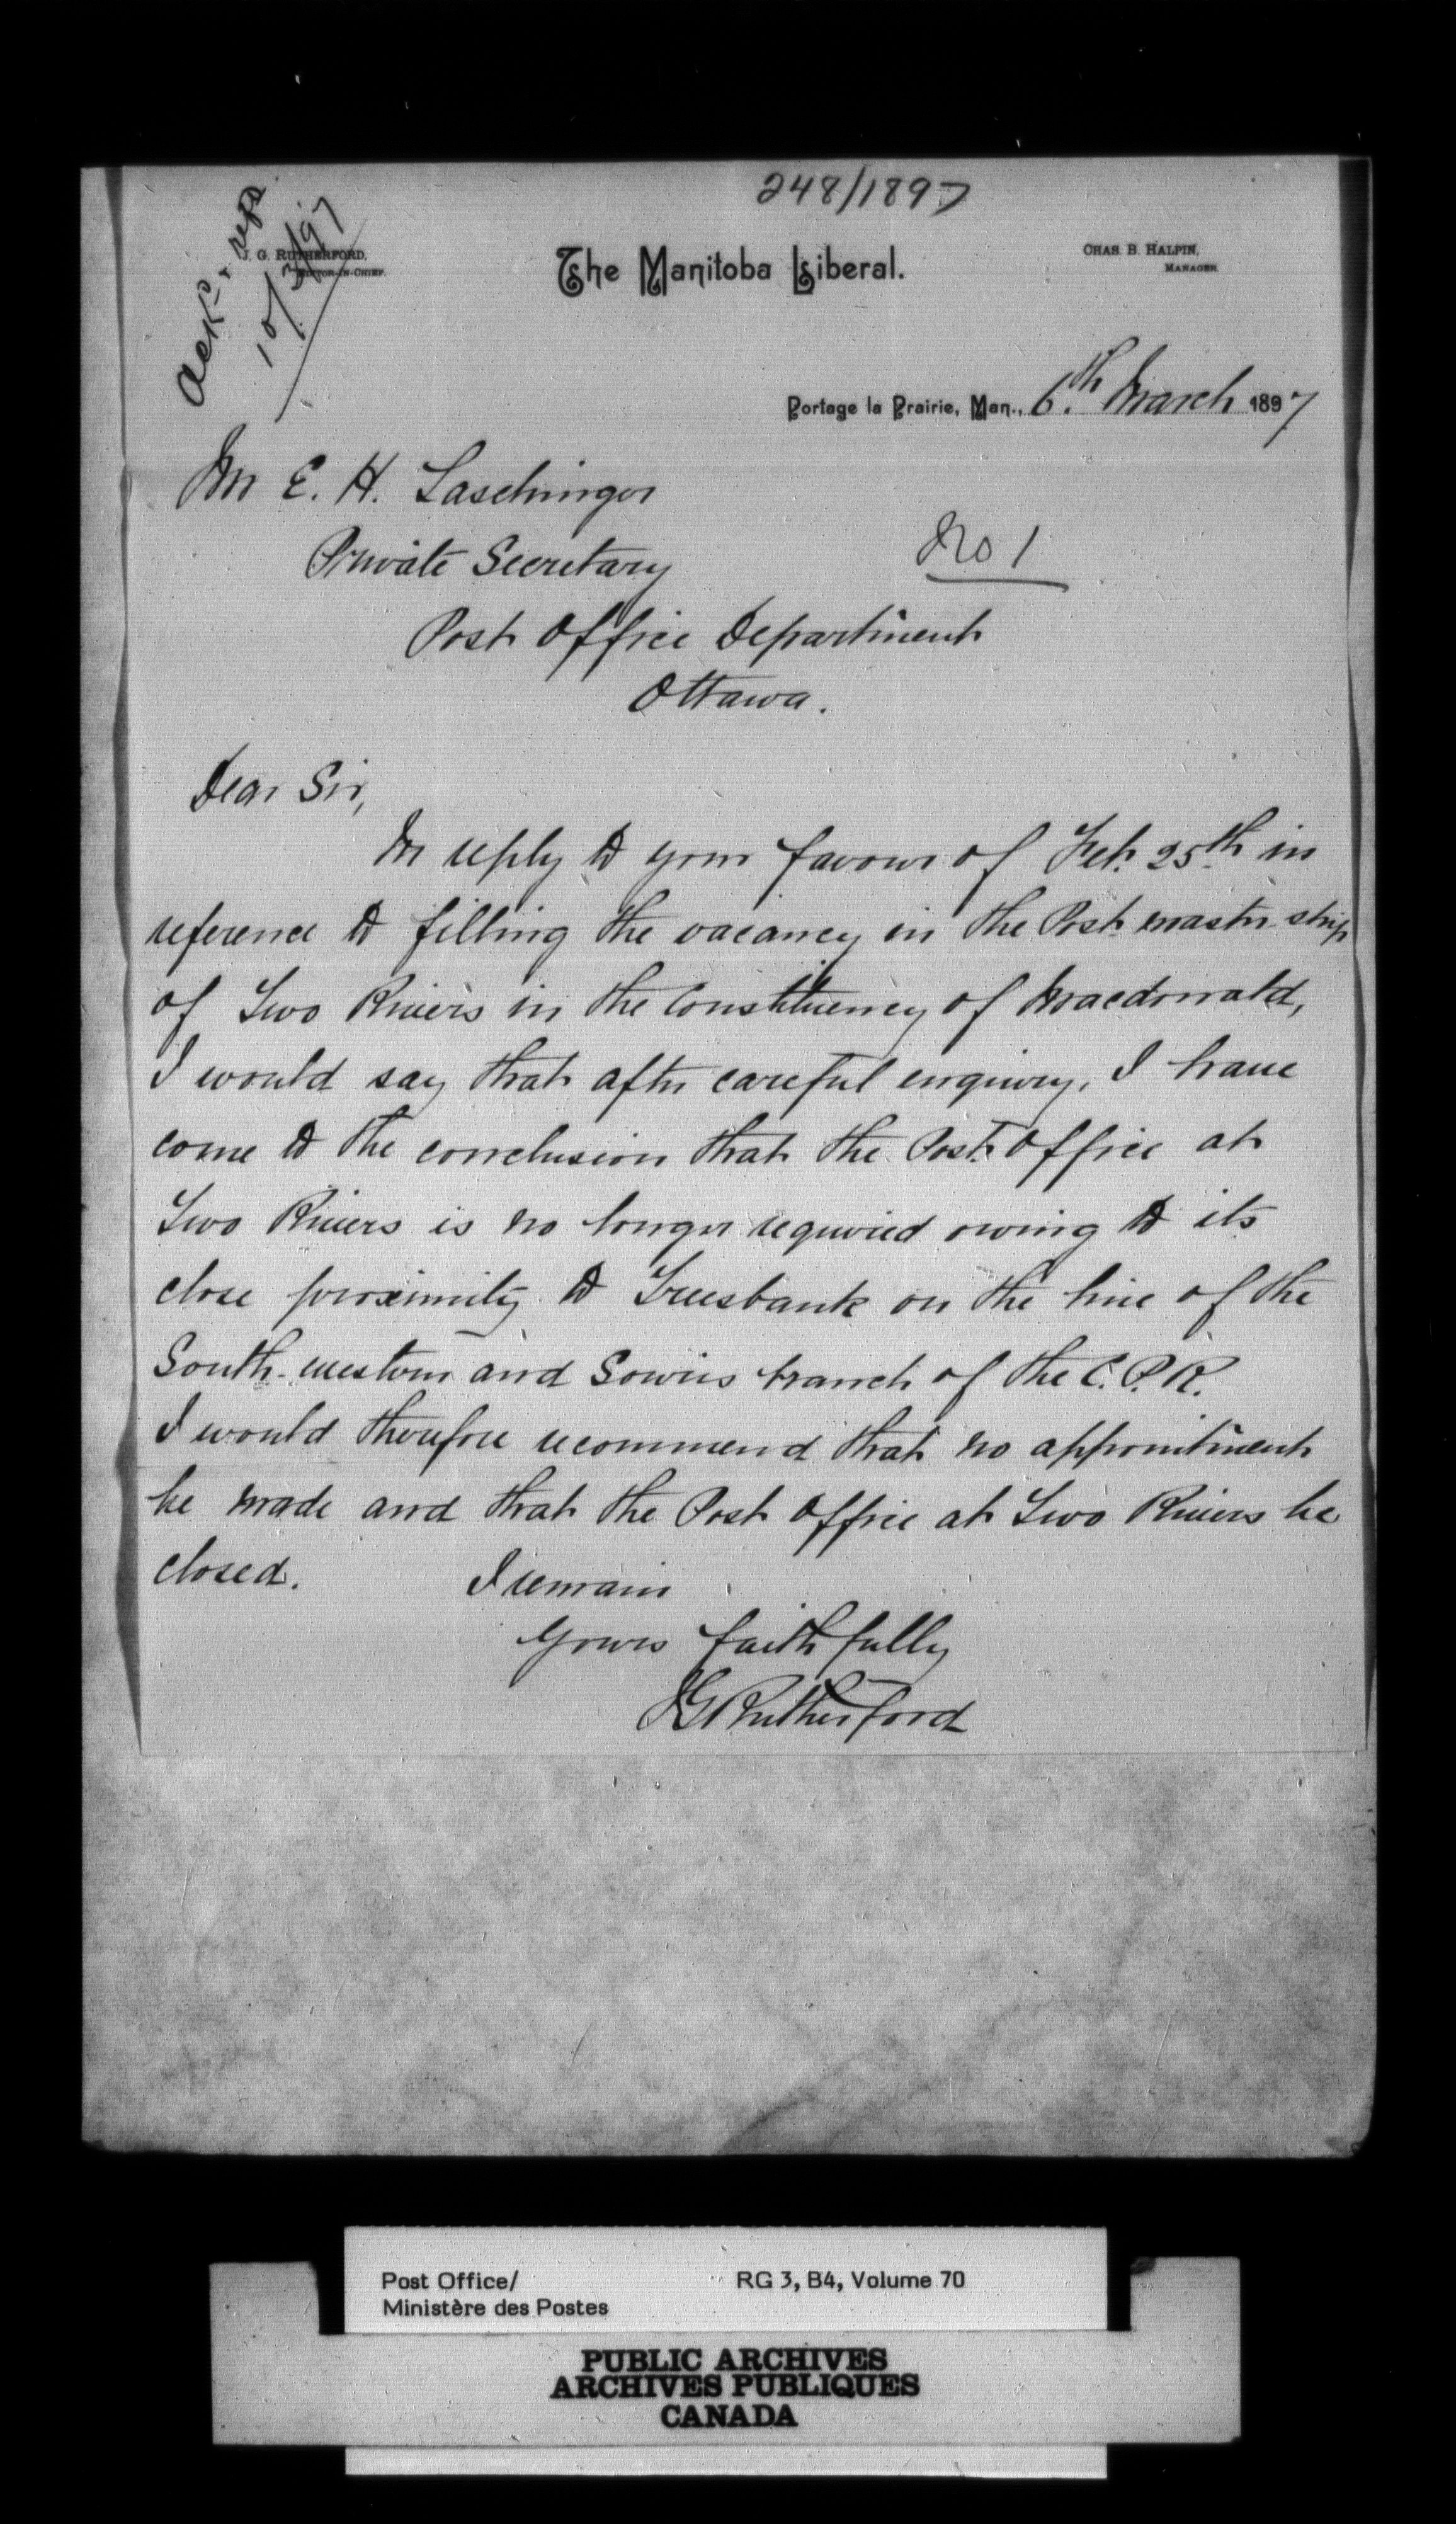 248/1897
Ackd & repd
10/3/97
J. G. RUTHERFORD,
EDITOR-IN-CHIEF.
The Manitoba Liberal.
CHAS. B. HALPIN,
MANAGER.
Portage la Prairie, Man., 6th March 1897
Mr E. H. Laschinger
Private Secretary
No 1
Post Office Department
Ottawa.
Dear Sir,
In reply to your favour of Feb. 25th in
reference to filling the vacancy in the Post master-ship
of Two Rivers in the Constituency of Macdonald,
I would say that after careful enquiry, I have
come to the conclusion that the Post Office at
Two Rivers is no longer required owing to its
close proximity to Treesbank on the line of the
South-western and Souris branch of the C.P.R.
I would therefore recommend that no appointment
be made and that the Post Office at Two Rivers be
closed. I remain
Yours faithfully
JGRutherford
Post Office/ RG 3, B4, Volume 70
Ministère des Postes
PUBLIC ARCHIVES
ARCHIVES PUBLIQUES
CANADA